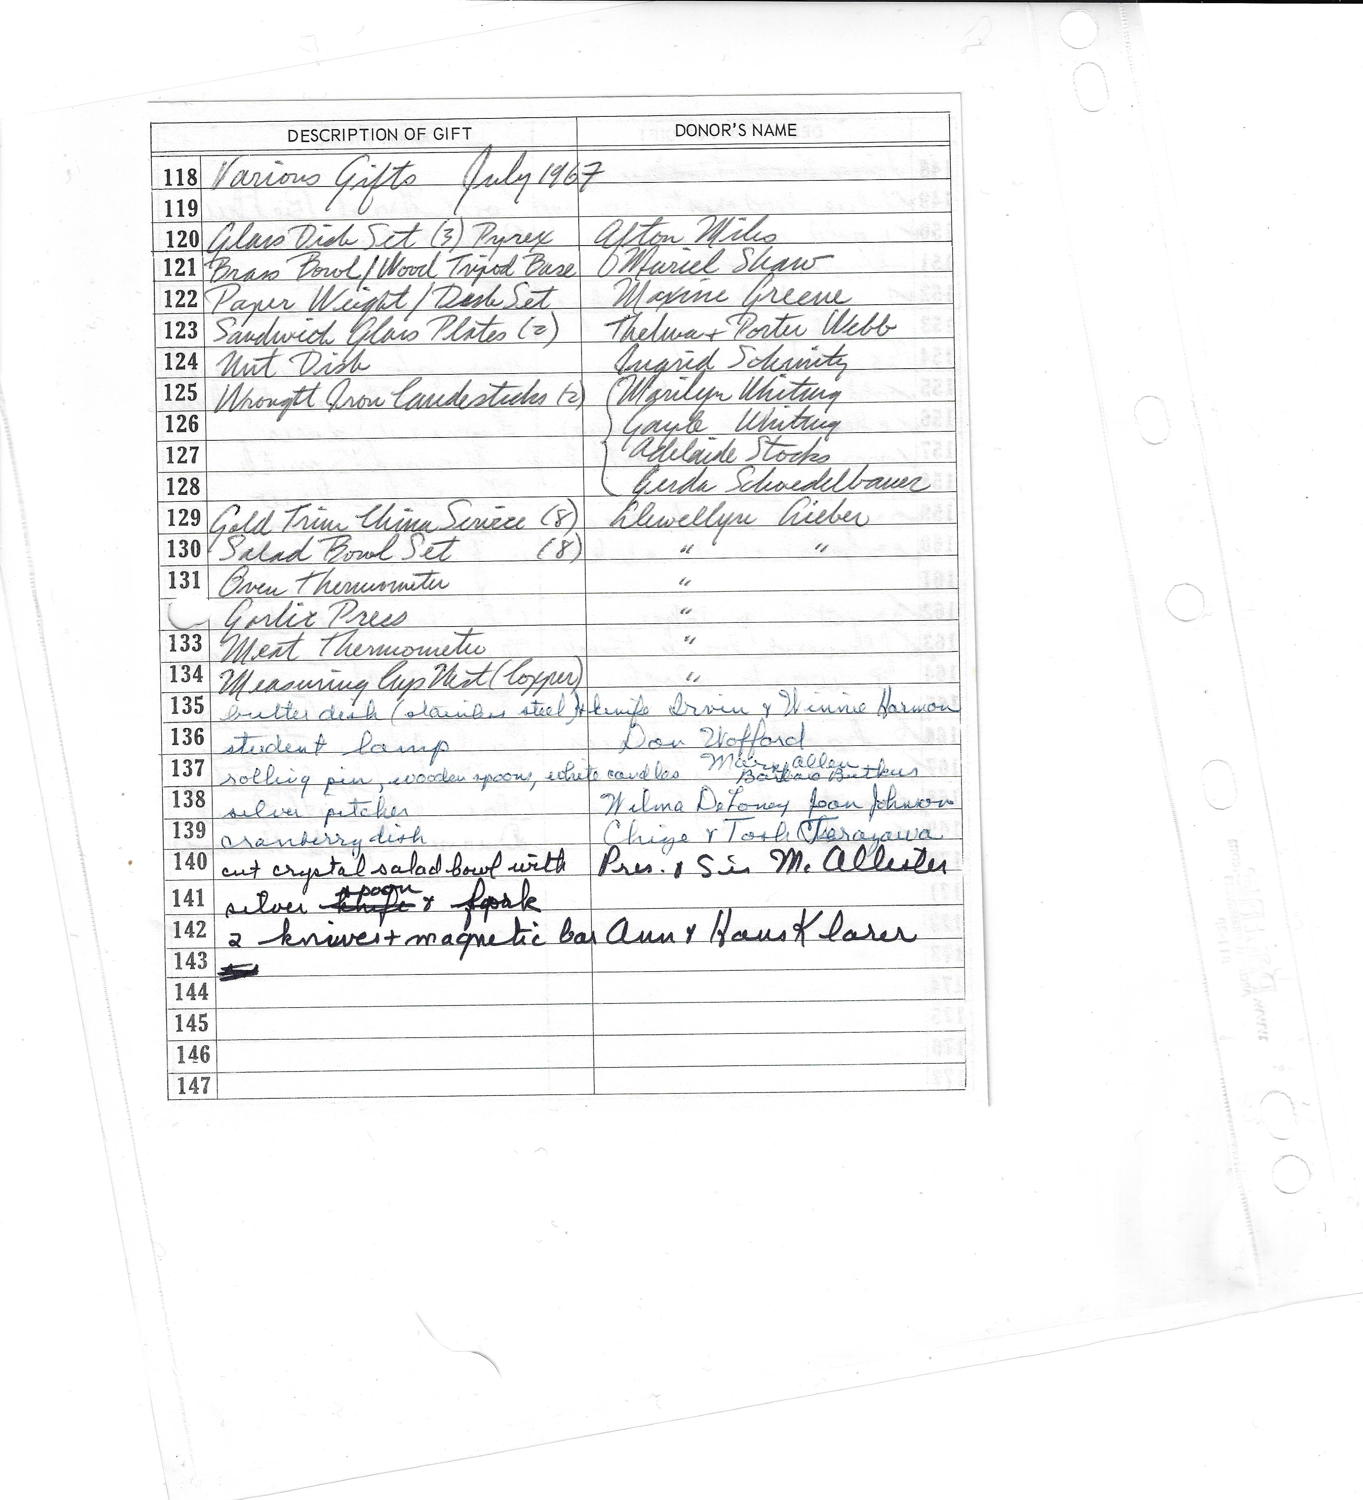 DESCRIPTION OF GIFT DONOR'S NAME
118 Various Gifts July 1967
119
120 Glass Dish Set (3) Pyrex Afton Miles
121 Brass Bowl/Wood Tripod Base Muriel Shaw
122 Paper Weight/Desk Set Maxine Greene
123 Sandwich Glass Plates (2) Thelma + Porter Webb
124 Nut Dish Ingrid
125 Wrought Iron Candlesticks (2) Marilyn Whiting
126 Gayle Whiting
127 Adelaide Stocks
128 Gerda Schoedelbauer
129 Gold Trim China Service (8) Llewellyn
130 Salad Bowl Set (8) " "
131 Oven Thermometer "
Garlic Press "
133 Meat Thermometer "
134 Measuring Cups Nest (Copper) "
135 butter dish (stainless steel) + knife Irvin & Winnie Harmon
136 student lamp Don Wofford
137 rolling pin, wooden spoons, white candles Mary Allen
Barbara Butkus
138 silver pitcher Wilma DeLoney Joan Johnson
139 cranberry dish Chize & Tosh Terazawa
140 cut crystal salad bowl with Pres. & Sis McAllister
141 silver knife spoon & fork
142 2 knives + magnetic bar Ann & Hans Klarer
143
144
145
146
147